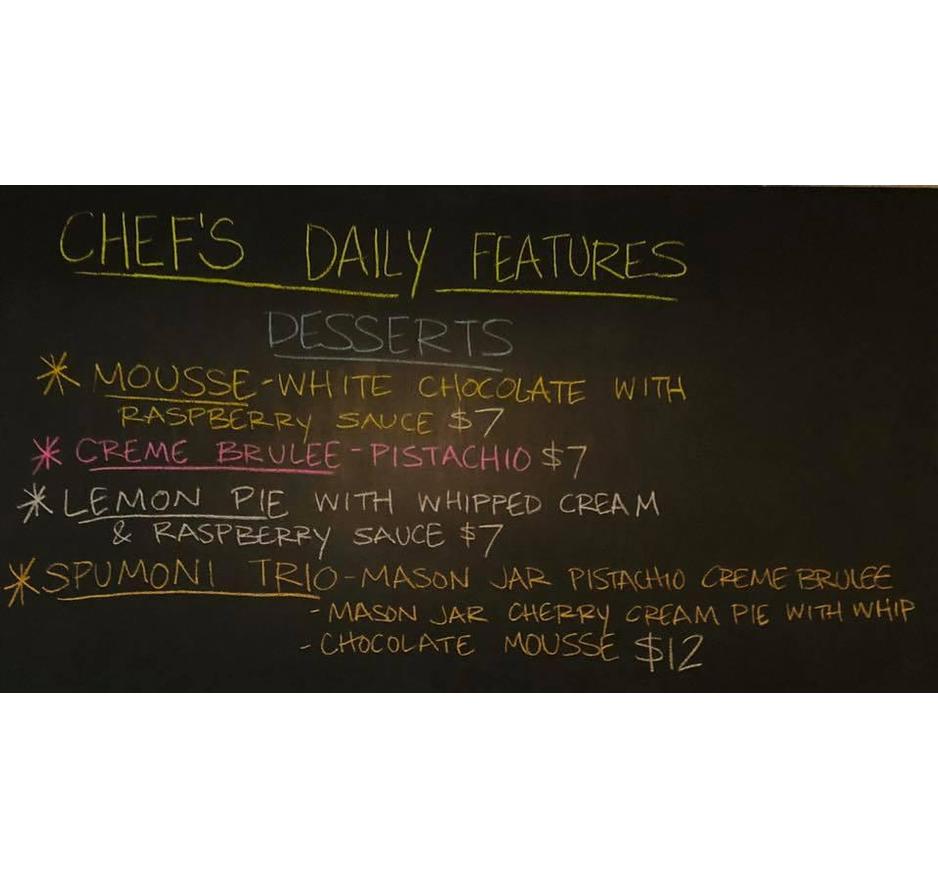 CHEF'S DAILY FEATURES
DESSERTS
* MOUSSE-WHITE CHOCOLATE WITH
RASPBERRY SAUCE $7
* CREME BRULEE-PISTACHIO $7
* LEMON PIE WITH WHIPPED CREAM
& RASPBERRY SAUCE $7
* SPUMONI TRIO-MASON JAR PISTACHIO CREME BRULEE
- MASON JAR CHERRY CREAM PIE WITH WHIP
- CHOCOLATE MOUSSE $12